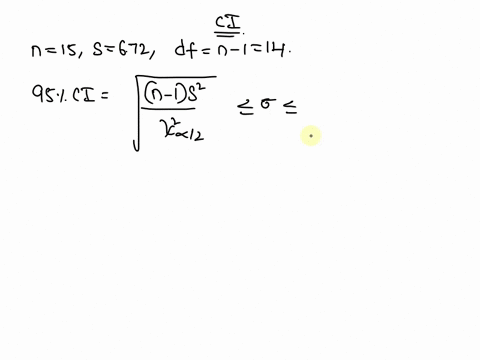 CI
n=15, S=672, df=n-1=14.
95% CI = √((n-1)S²/χ²α/2) ≤ σ ≤